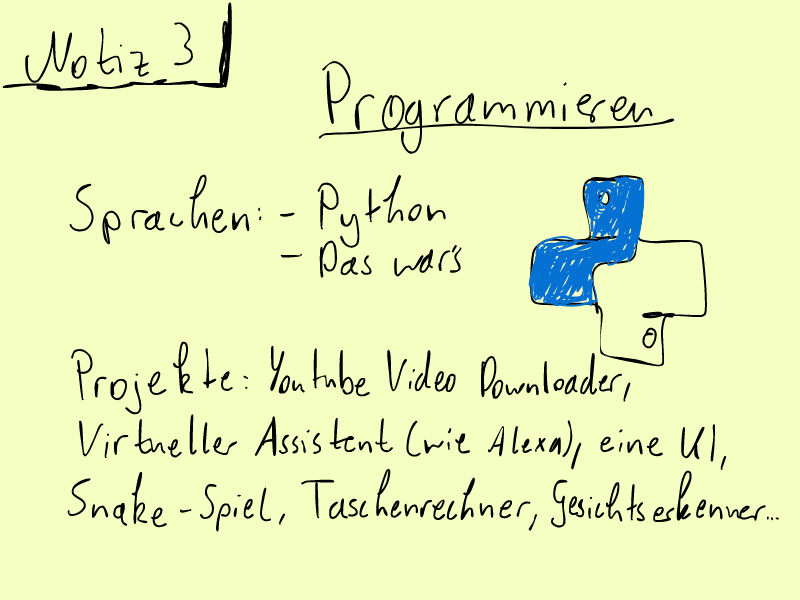 Notiz 3
Programmieren
Sprachen: - Python
- Das war's
Projekte: Youtube Video Downloader,
Virtueller Assistent (wie Alexa), eine UI,
Snake-Spiel, Taschenrechner, Gesichtserkenner...